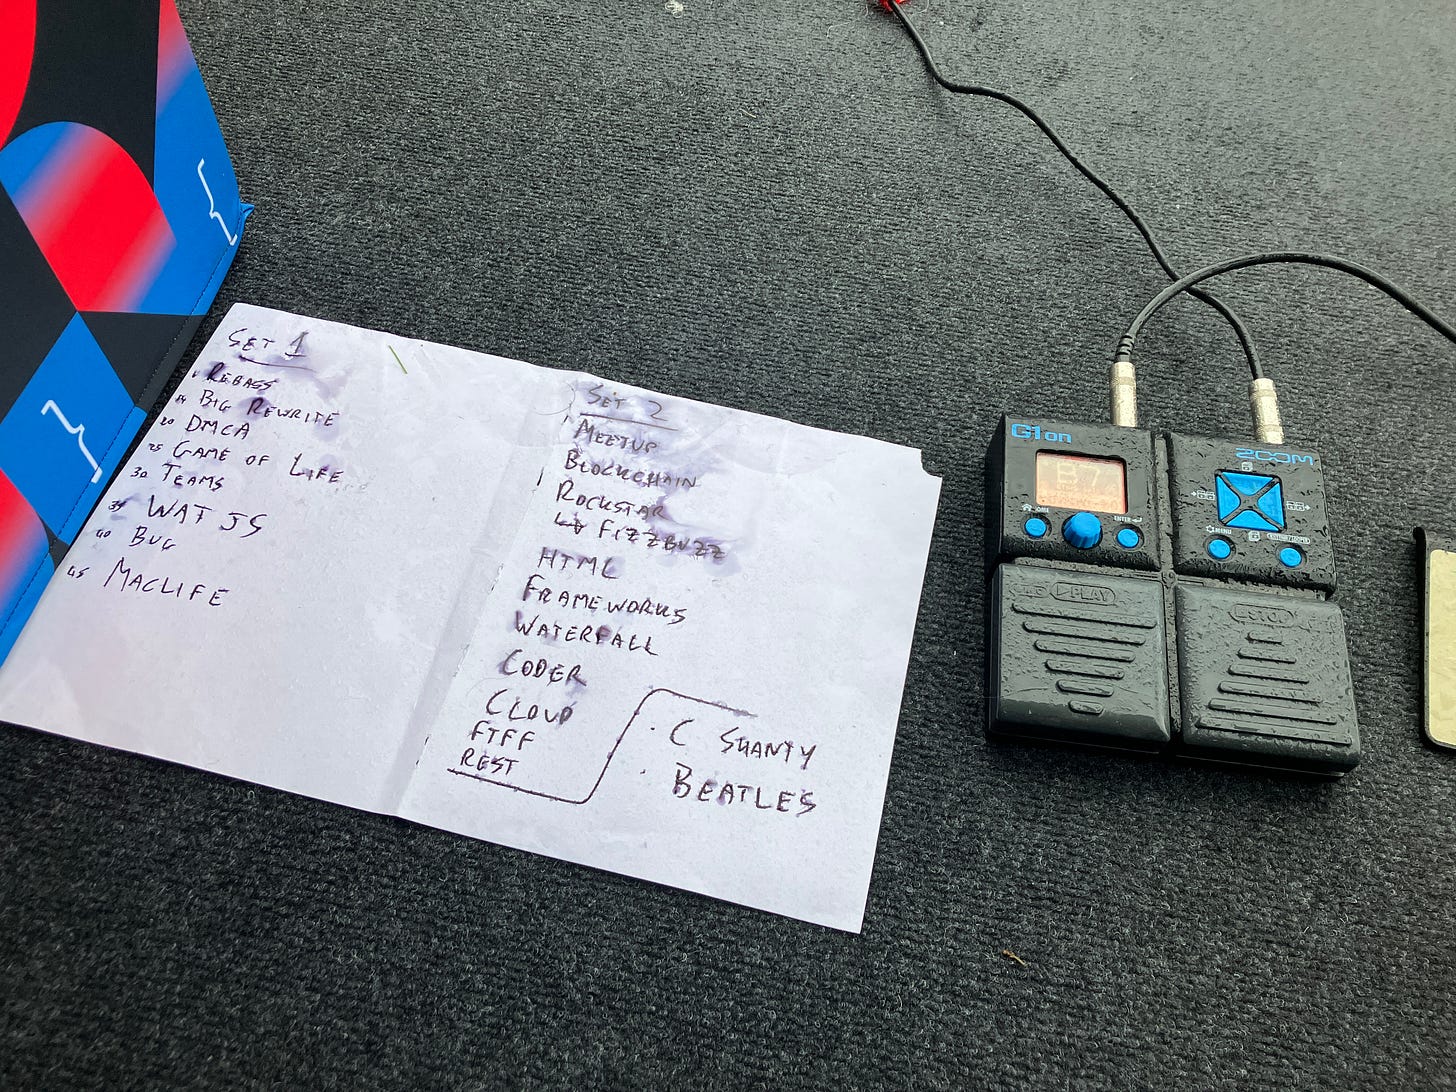 SET 1
REBASS
BIG REWRITE
20 DMCA
25 GAME OF LIFE
30 TEAMS
35 WAT JS
40 BUG
45 MACLIFE
SET 2
MEETUP
BLOCKCHAIN
ROCKSTAR
↳ FIZZBUZZ
HTML
FRAMEWORKS
WATERFALL
CODER
CLOUD
FTFF
REST
· C SHANTY
· BEATLES
G1on
ZOOM
B7
HOME
ENTER
MENU
PLAY
STOP